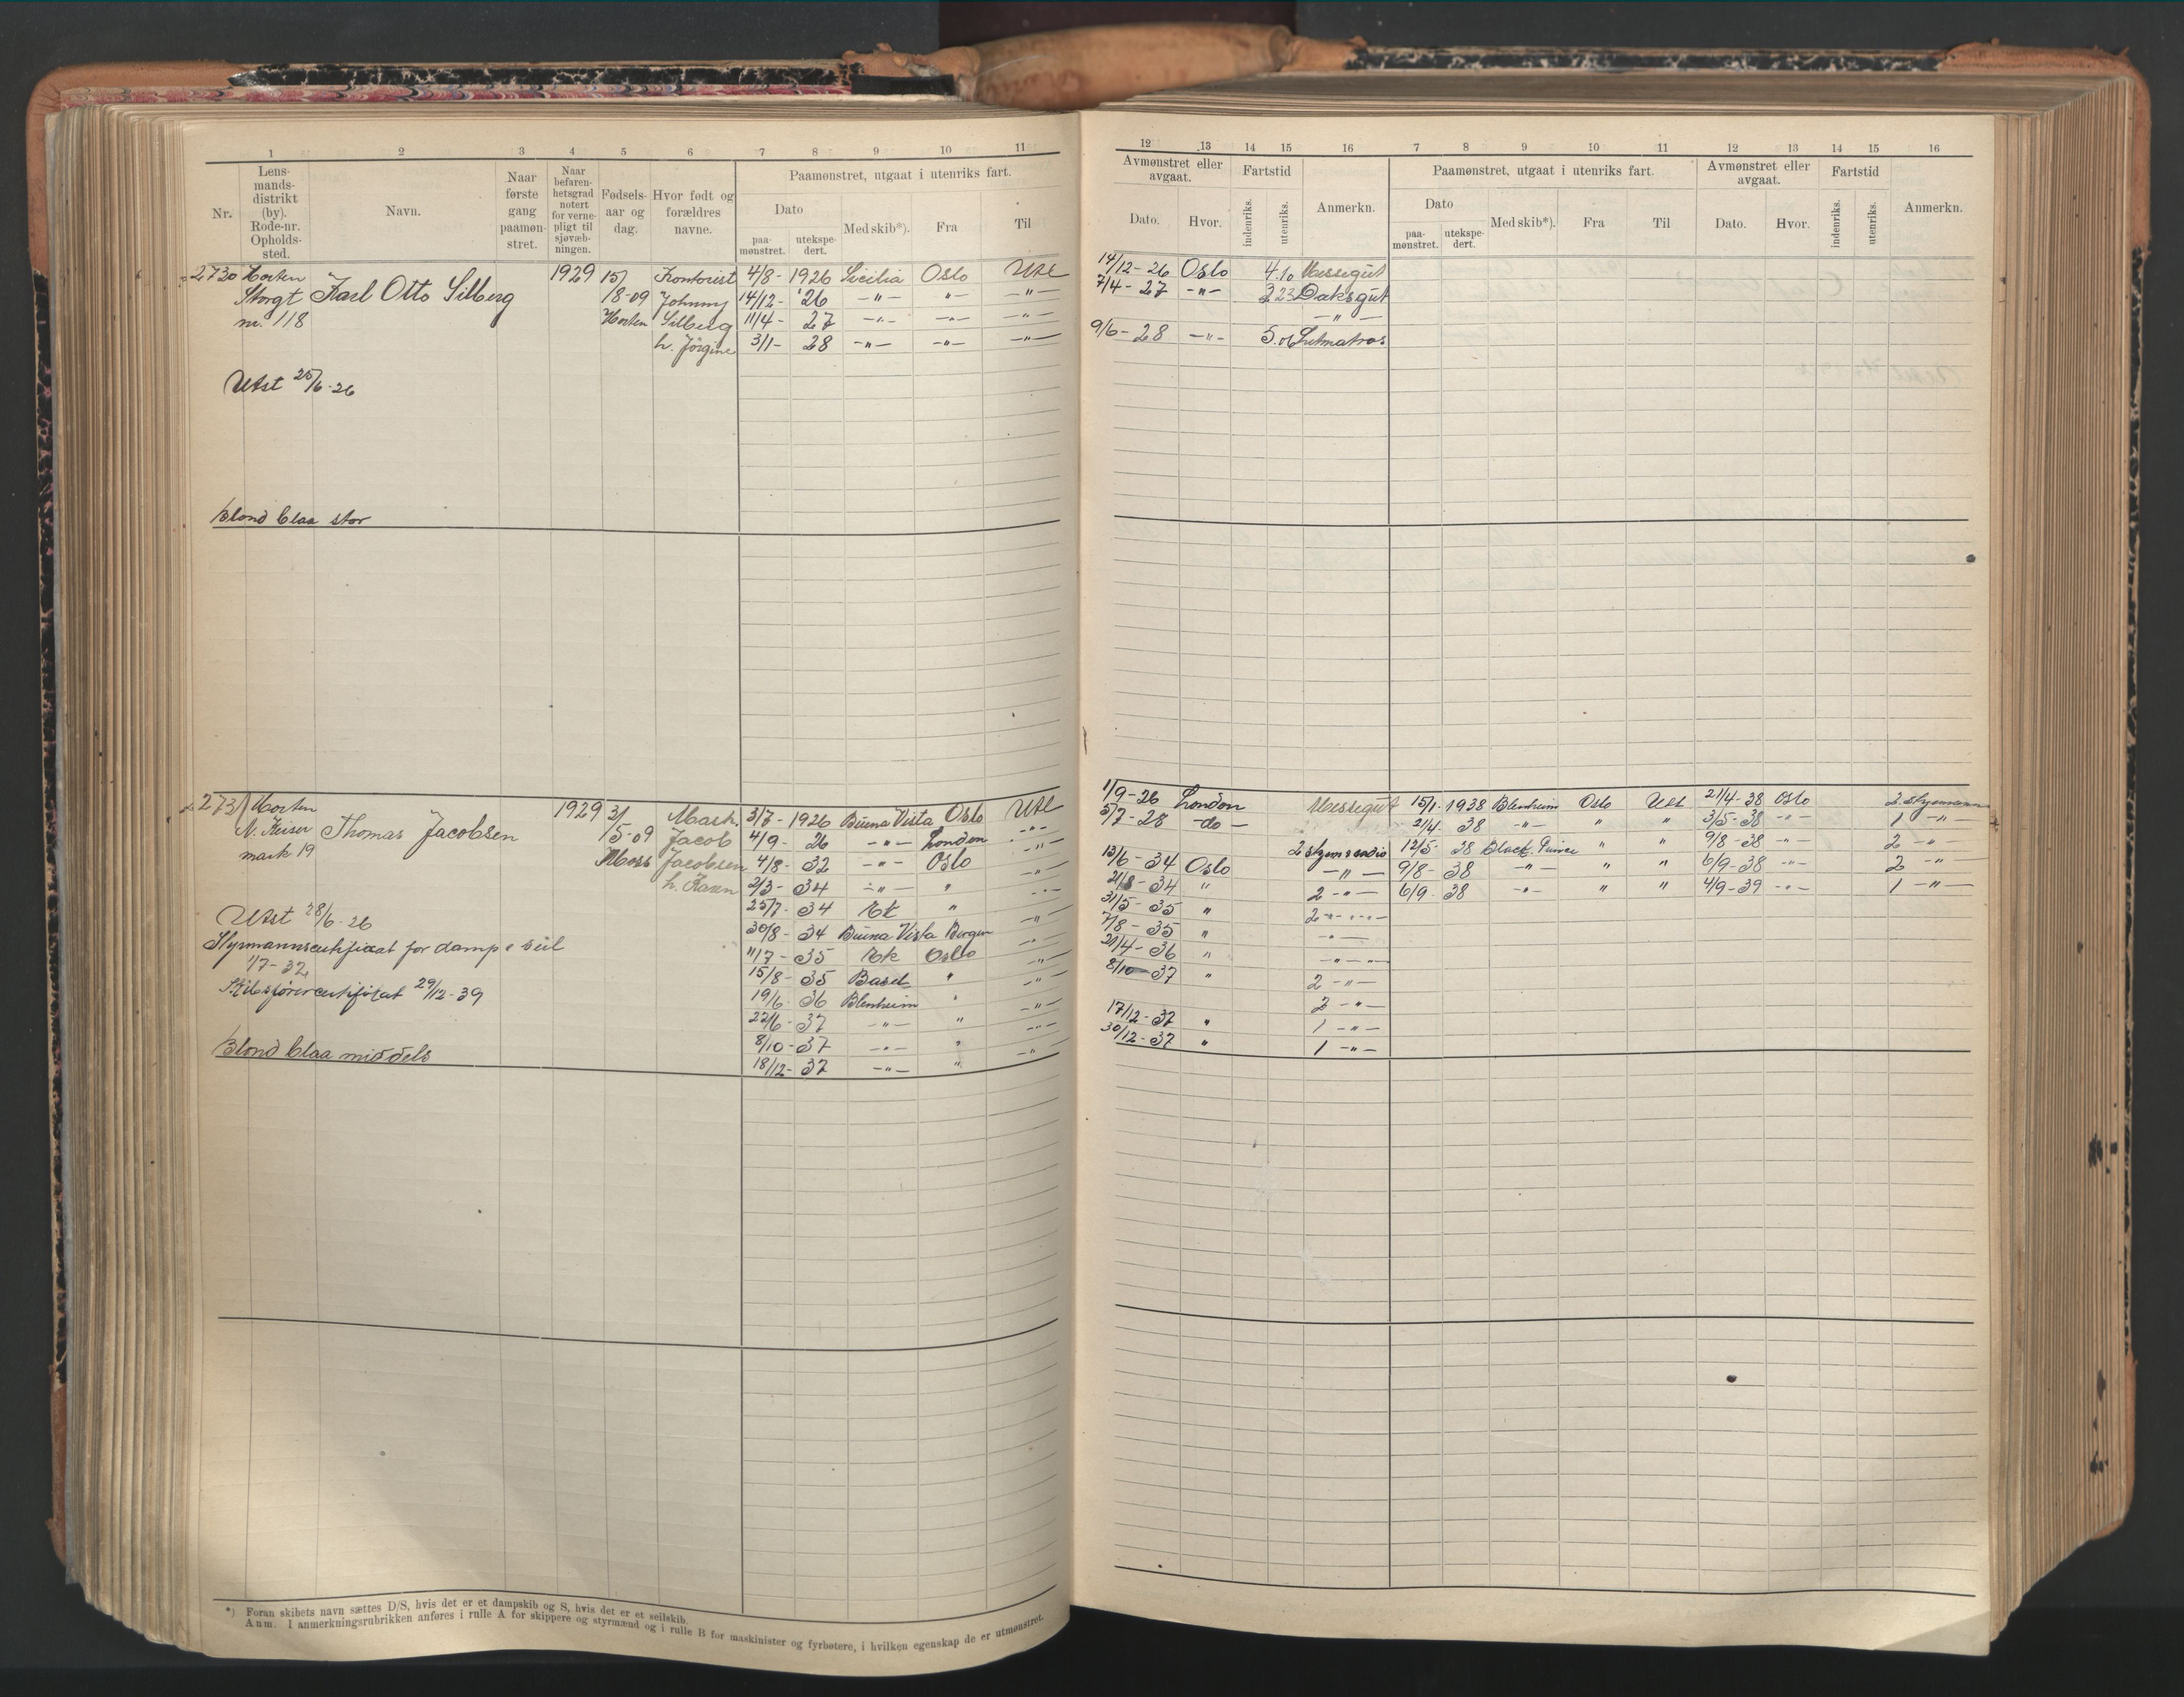 1 2 3 4 5 6 7 8 9 10 11
Nr.
Lens-
mands-
distrikt
(by).
Rode-nr.
Opholds-
sted.
Navn.
Naar
første
gang
paamøn-
stret.
Naar
befaren-
hetsgrad
notert
for verne-
pligt til
sjøvæb-
ningen.
Fødsels-
aar og
dag.
Hvor født og
forældres
navne.
Paamønstret, utgaat i utenriks fart.
Dato
paa-
mønstret.
utekspe-
dert.
Med skib*).
Fra
Til
2730 Horten Karl Otto Silberg 1929 15/ Kontorist 4/8- 1926 Sicilia Oslo Utl
Storgt 8-09 Johnny 14/12- 26 -"- -"- -"-
nr. 118 Horten Silberg 11/4- 27 -"- -"- -"-
h. Jörgine 3/1- 28 -"- -"- -"-
Utst 25/6-26
Blond blaa stor
2731 Horten Thomas Jacobsen 1929 3/ Mask. 3/7- 1926 Buena Vista Oslo Utl
N. Keiser 5-09 Jacob 4/9- 26 -"- London -"-
mark 19 Moss Jacobsen 4/8- 32 -"- Oslo -"-
h. Karen 2/3- 34 -"- " -"-
25/7- 34 " -"-
Utst 28/6-26
30/8- 34 Buena Vista Bergen -"-
Styrmannscertifikat for damp & seil
11/7- 35 Oslo -"-
1/7-32
15/8- 35 Basel " -"-
Skibsførercertifikat 29/12-39
19/6- 36 Blenheim " -"-
22/6- 37 -"- " -"-
Blond blaa middels
8/10- 37 -"- " -"-
18/12- 37 -"- " -"-
*) Foran skibets navn sættes D/S, hvis det er et dampskib og S, hvis det er et seilskib.
Anm. I anmerkningsrubrikken anføres i rulle A for skippere og styrmænd og i rulle B for maskinister og fyrbøtere, i hvilken egenskap de er utmønstret.
12 13 14 15 16 7 8 9 10 11 12 13 14 15 16
Avmønstret eller
avgaat.
Dato.
Hvor.
Fartstid
indenriks.
utenriks.
Anmerkn.
Paamønstret, utgaat i utenriks fart.
Dato
paa-
mønstret.
utekspe-
dert.
Med skib*).
Fra
Til
Avmønstret eller
avgaat.
Dato.
Hvor.
Fartstid
indenriks.
utenriks.
Anmerkn.
14/12-26 Oslo 4.10 Messegut
7/4-27 -"- 3.23 Daksgut
-"-
9/6-28 -"- 5.06 Letmatros
1/9-26 London Messegut 15/1- 1938 Blenheim Oslo Utl 21/4-38 Oslo 2. styrmann
5/7-28 -do- 21/4- 38 -"- " " 3/5-38 -"- 1 -"-
2 styrm & radio 12/5- 38 Black Prince " " 9/8-38 -"- 2 -"-
13/6-34 Oslo -"- 9/8- 38 -"- " " 6/9-38 -"- 2 -"-
21/8-34 " 2 -"- 6/9- 38 -"- " " 4/9-39 -"- 1 -"-
31/5-35 " 2 -"-
7/8-35 " -"-
21/4-36 " -"-
8/10-37 " 2 -"-
2 -"-
17/12-37 " 1 -"-
30/12-37 " 1 -"-